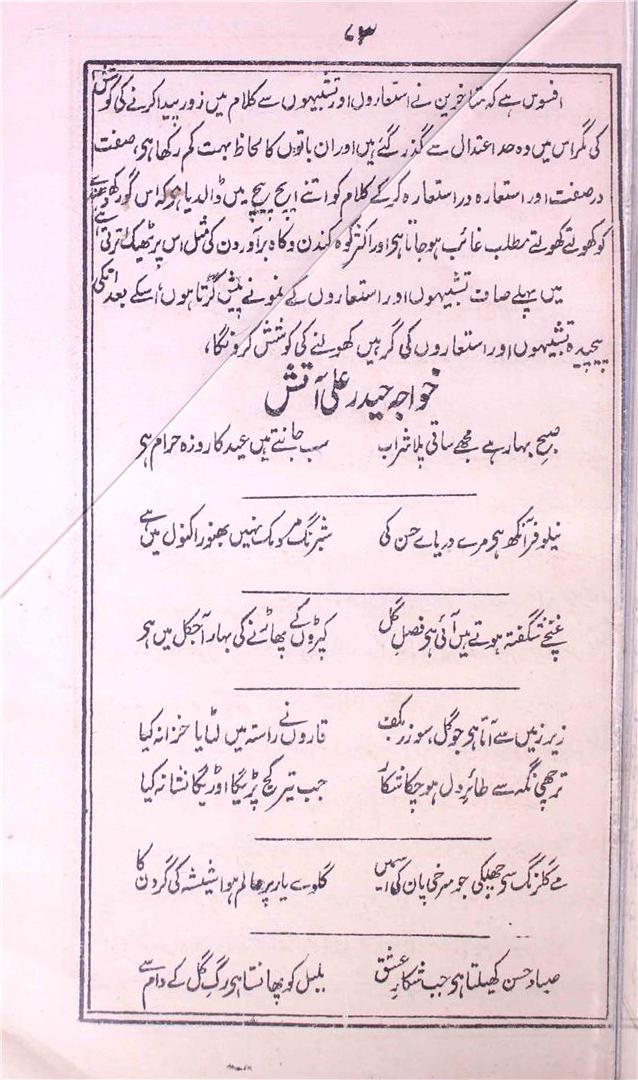 ۷۳
افسوس ہے کہ متاخرین نے استعاروں اور تشبیہوں سے کلام میں زور پیدا کرنے کی کوشش
کی مگر اس میں وہ حد اعتدال سے گذر گئے ہیں اور ان باتوں کا لحاظ بہت کم رکھا ہی، صفت
در صفت اور استعارہ در استعارہ کر کے کلام کو اتنے ایچ پیچ میں ڈالدیا ہو کہ اس گورکھ دھندے
کو کھولتے کھولتے مطلب غائب ہو جاتا ہی اور اکثر کوہ کندن و کاہ برآوردن کی مثل اس پر ٹھیک اترتی ہے
میں پہلے صاف تشبیہوں اور استعاروں کے نمونے پیش کرتا ہوں، اسکے بعد انکی
پیچیدہ تشبیہوں اور استعاروں کی گرہیں کھولنے کی کوشش کرونگا،
خواجہ حیدر علی آتش
صبح بہار ہے مجھے ساقی پلا شراب سب جانتے ہیں عید کا روزہ حرام ہی
نیلوفر آنکھ ہی مرے دریاے حسن کی شبرنگ مردمک نہیں بھنورا کنول میں ہے
غنچے شگفتہ ہوتے ہیں آئی ہی فصل گل کپڑوں کے پھاڑنے کی بہار آجکل میں ہی
زیر زمیں سے آتا ہی جو گل، سو زر بکف قاروں نے راستہ میں لٹایا خزانہ کیا
ترچھی نگہ سے طائر دل ہو چکا شکار جب تیر کج پڑیگا اوڑیگا نشانہ کیا
مے گلرنگ سی جھلکی جو سرخی پان کی اسمیں گلوے یار پر عالم ہوا شیشہ کی گردن کا
صیاد حسن کھیلتا ہی جب شکار عشق بلبل کو پھانستا ہی رگ گل کے دام سے